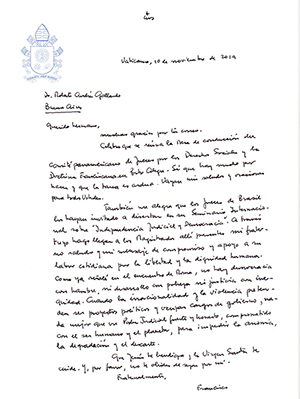 Vaticano, 10 de noviembre de 2019
Dr. Roberto Andrés Gallardo
Buenos Aires
Querido hermano,
muchas gracias por tu correo.
Celebro que se reúna la Mesa de conducción del
Comité panamericano de Jueces por los Derechos Sociales y la
Doctrina Franciscana en Porto Alegre. Sé que hay mucho por
hacer y que la tarea es ardua. Vayan mi saludo y oraciones
para todos Ustedes.
También me alegra que los jueces de Brasil
los hayan invitado a disertar en un Seminario Internacio-
nal sobre "Independencia Judicial y Democracia". A través
tuyo hago llegar a los Magistrados allí presentes mi frater-
no saludo y mi mensaje de compromiso y apoyo a su
labor cotidiana por la libertad y la dignidad humana.
Como ya señalé en el encuentro de Roma, no hay democracia
con hambre, ni desarrollo con pobreza ni justicia en ine-
quidad. Cuando la irracionalidad y la violencia preten-
den ser proyectos políticos y ocupar cargos de gobierno, na-
da mejor que un Poder Judicial fuerte y honesto, comprometido
con el ser humano y el planeta, para impedir la anomia,
la degradación y el descarte.
Que Jesús te bendiga y la Virgen Santa te
cuide. Y, por favor, no te olvides de rezar por mí.
Fraternalmente,
Francisco